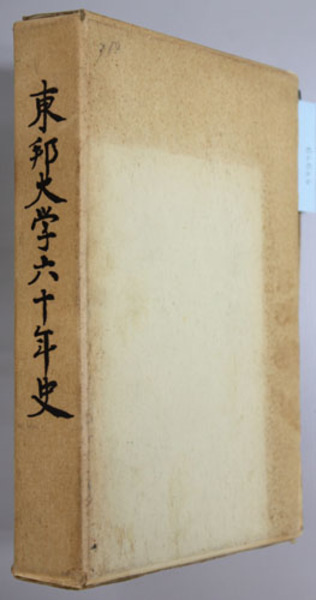 東邦大学六十年史